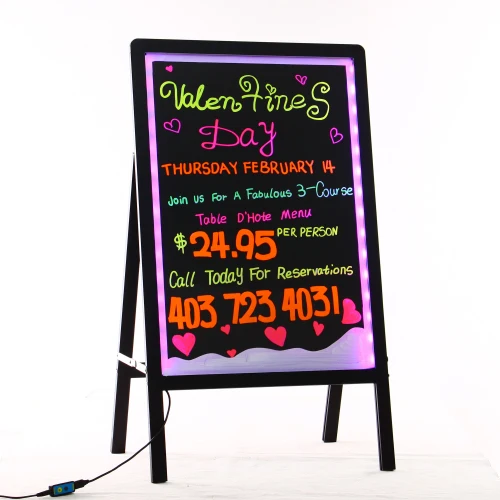 Valentines
Day
THURSDAY FEBRUARY 14
Join us For A Fabulous 3-Course
Table D'Hote Menu
$24.95 PER PERSON
Call Today For Reservations
403 723 4031